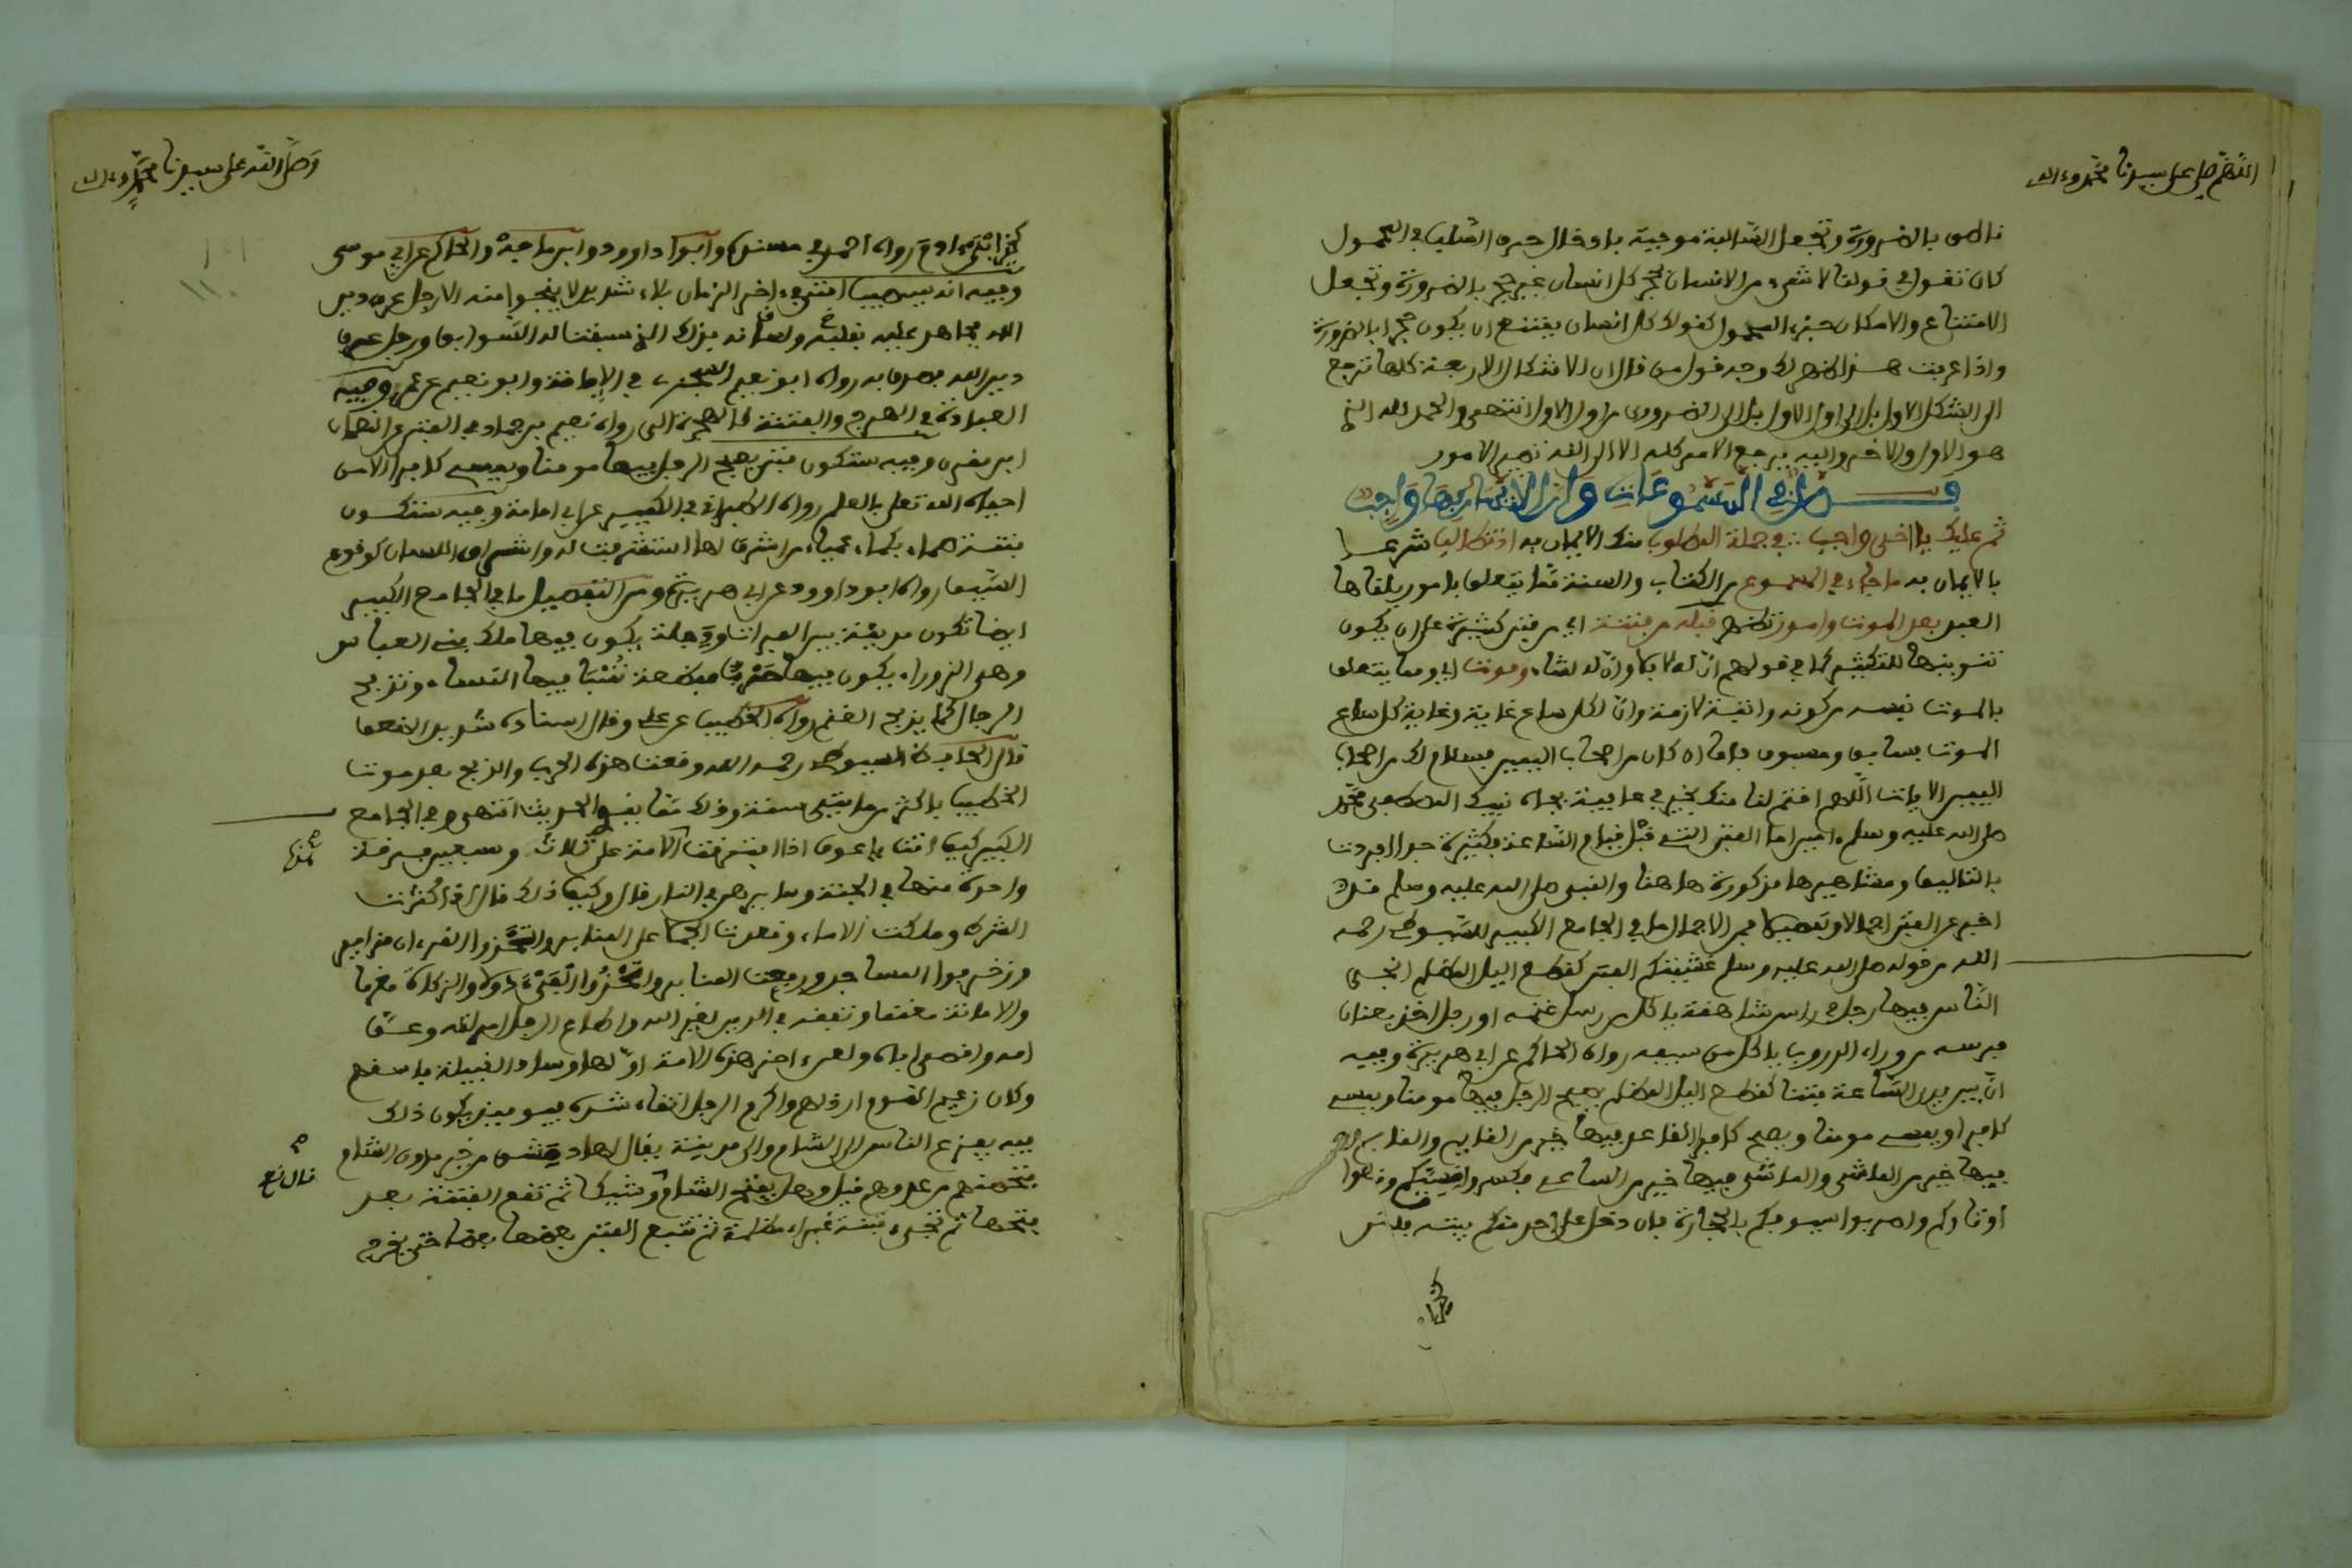 اللهم صل على سيدنا محمد وءاله
ناطق بالضرورة وتجعل السالبة موجبة بادخال حرف السلب في المحمول
كان تقول في قولنا لا شيء من الانسان بحجر كل انسان غير حجر بالضرورة وتجعل
الامتناع والامكان جزء المحمول كقولك كل انسان يمتنع ان يكون حجرا بالضرورة
واذا عرفت هذا ظهر لك وجه قول من قال ان الاشكال الاربعة كلها ترجع
الى الشكل الاول بل الى اول الاول بل الى الضروري من اول الاول انتهى والحمد لله الذي
هو الاول والاخر واليه يرجع الامر كله الا الى الله تصير الامور
فصل في المسموعات وان الايمان بها واجب
ثم عليك يا اخي واجب في جملة المطلوب منك الايمان به اذ تطالب شرعا
بالايمان به ما جاء في المسموع من الكتاب والسنة مما يتعلق بامور يلقاها
العبد بعد الموت وامور تظهر قبله من فتنة اي من فتن كثيرة على ان يكون
تنوينها للتكثير كما في قولهم ان له لابلا وان له لشاء وموت اي ومما يتعلق
بالموت نفسه من كونه وانية لازمة وان لكل ساع غاية وغاية كل ساع
الموت فسابق ومسبوق فاما ان كان من اصحاب اليمين فسلام لك من اصحاب
اليمين الايات اللهم اختم لنا منك بخير في عافية بجاه نبيك المصطفى محمد
صلى الله عليه وسلم ءامين اما الفتن التي قبل قيام الساعة فكثيرة جدا افردت
بالتاليف ومشاهيرها مذكورة ها هنا والنبي صلى الله عليه وسلم قد
اخبر عن الفتن اجمالا وتفصيلا فمن الاجمال ما في الجامع الكبير للسيوطي رحمه
الله من قوله صلى الله عليه وسلم غشيتكم الفتن كقطع الليل المظلم انجى
الناس فيها رجل في راس شاهقة ياكل من رسل غنمه او رجل اخذ بعنان
فرسه من وراء الدروب ياكل من سيفه رواه الحاكم عن ابي هريرة وفيه
ان بين يدي الساعة فتنا كقطع الليل المظلم يصبح الرجل فيها مومنا ويمسي
كافرا ويمسي مومنا ويصبح كافرا القاعد فيها خير من القايم والقايم
فيها خير من الماشي والماشي فيها خير من الساعي فكسروا قسيكم وقطعوا
اوتاركم واضربوا سيوفكم بالحجارة فان دخل على احد منكم بيته فليكن
كخير ابني
وصل الله على سيدنا محمد وءاله
كخير ابني ءادم رواه احمد في مسنده وابو داوود وابن ماجة والحاكم عن ابي موسى
وفيه انه سيصيب امتي في ءاخر الزمان بلاء شديد لا ينجوا منه الا رجل عرف دين
الله فجاهد عليه بقلبه ولسانه فذلك الذي سبقت له السوابق ورجل عرف
دين الله فصدق به رواه ابو نصر السجزي في الابانة وابو نعيم عن عمر وفيه
العبادة في الهرج والفتنة كالهجرة الي رواه نعيم بن حماد في الفتن عن النعمان
ابن مقرن وفيه ستكون فتن يصبح الرجل فيها مومنا ويمسي كافرا الا من
احياه الله تعلى بالعلم رواه الطبراني في الكبير عن ابي امامة وفيه ستكون
فتنة صماء بكماء عمياء من اشرف لها استشرفت له واشراف اللسان كوقوع
السيف رواه ابو داوود عن ابي هريرة ومن التفصيل ما في الجامع الكبير
ايضا تكون مدينة بين الفرات ودجلة يكون فيها ملك بني العباس
وهي الزوراء يكون فيها حرب مفضعة تسبا فيها النساء وتذبح
الرجال كما يذبح الغنم رواه الخطيب عن علي وقال اسناده شديد الضعف
قال الحافظ السيوطي رحمه الله وقعت هذه الحرب والذبح بعد موت
الخطيب باكثر من مايتي سنة وذلك مما يقوي الحديث انتهى وفي الجامع
الكبير كيف انت يا عوف اذا افترقت الامة على ثلاث وسبعين فرقة
واحدة منها في الجنة وسايرهن في النار قال وكيف ذلك قال اذا كثرت
الشرط وملكت الاماء وقعدت الجملا على المنابر واتخذوا القرءان مزامير
وزخرفوا المساجد ورفعت المنابر واتخذوا الفيء دولا والزكاة مغرما
والامانة مغنما وتفقه في الدين لغير الله واطاع الرجل امراته وعق
امه واقصى اباه ولعن ءاخر هذه الامة اولها وساد القبيلة فاسقهم
وكان زعيم القوم ارذلهم واكرم الرجل اتقاء شره فيوميذ يكون ذلك
فيه يفزع الناس الى الشام والى مدينة يقال لها دمشق من خير مدن الشام
فتحصنهم من عدوهم قيل وهل يفتح الشام وشيكا ثم تقع الفتنة بعد
فتحها ثم تجيء فتنة غبراء مظلمة ثم تتبع الفتن بعضها بعضا حتى يخرج
قال نعم